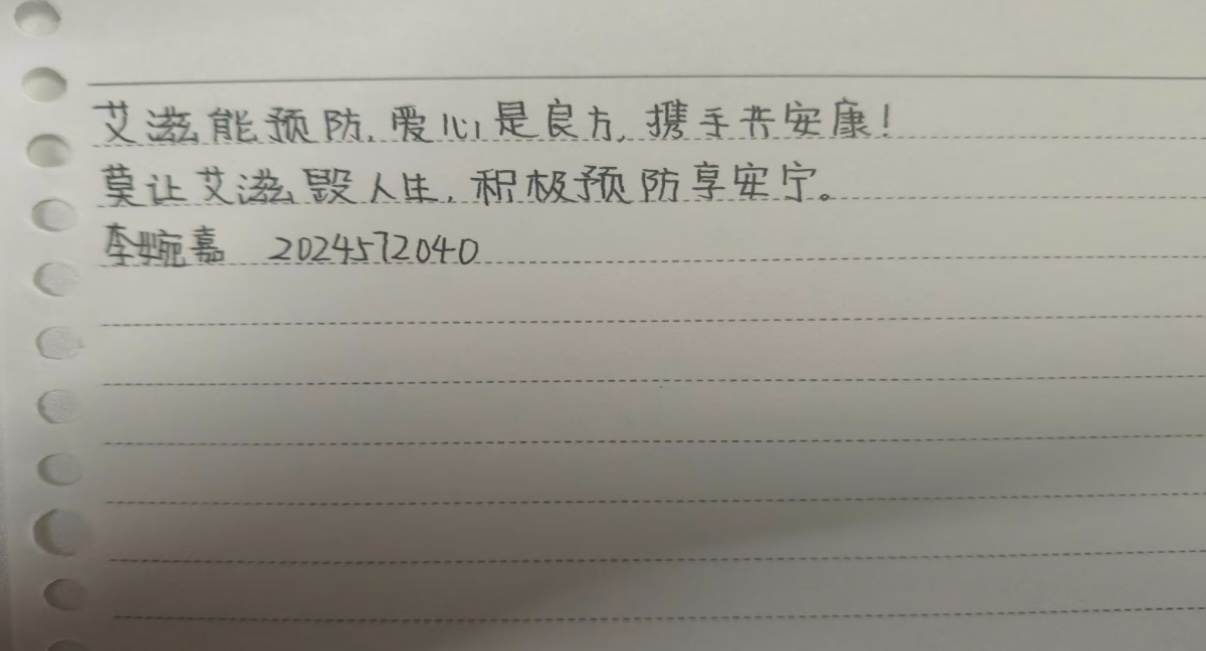 艾滋能预防,爱心是良方,携手共安康!
莫让艾滋毁人生,积极预防享安宁。
李婉嘉 2024572040